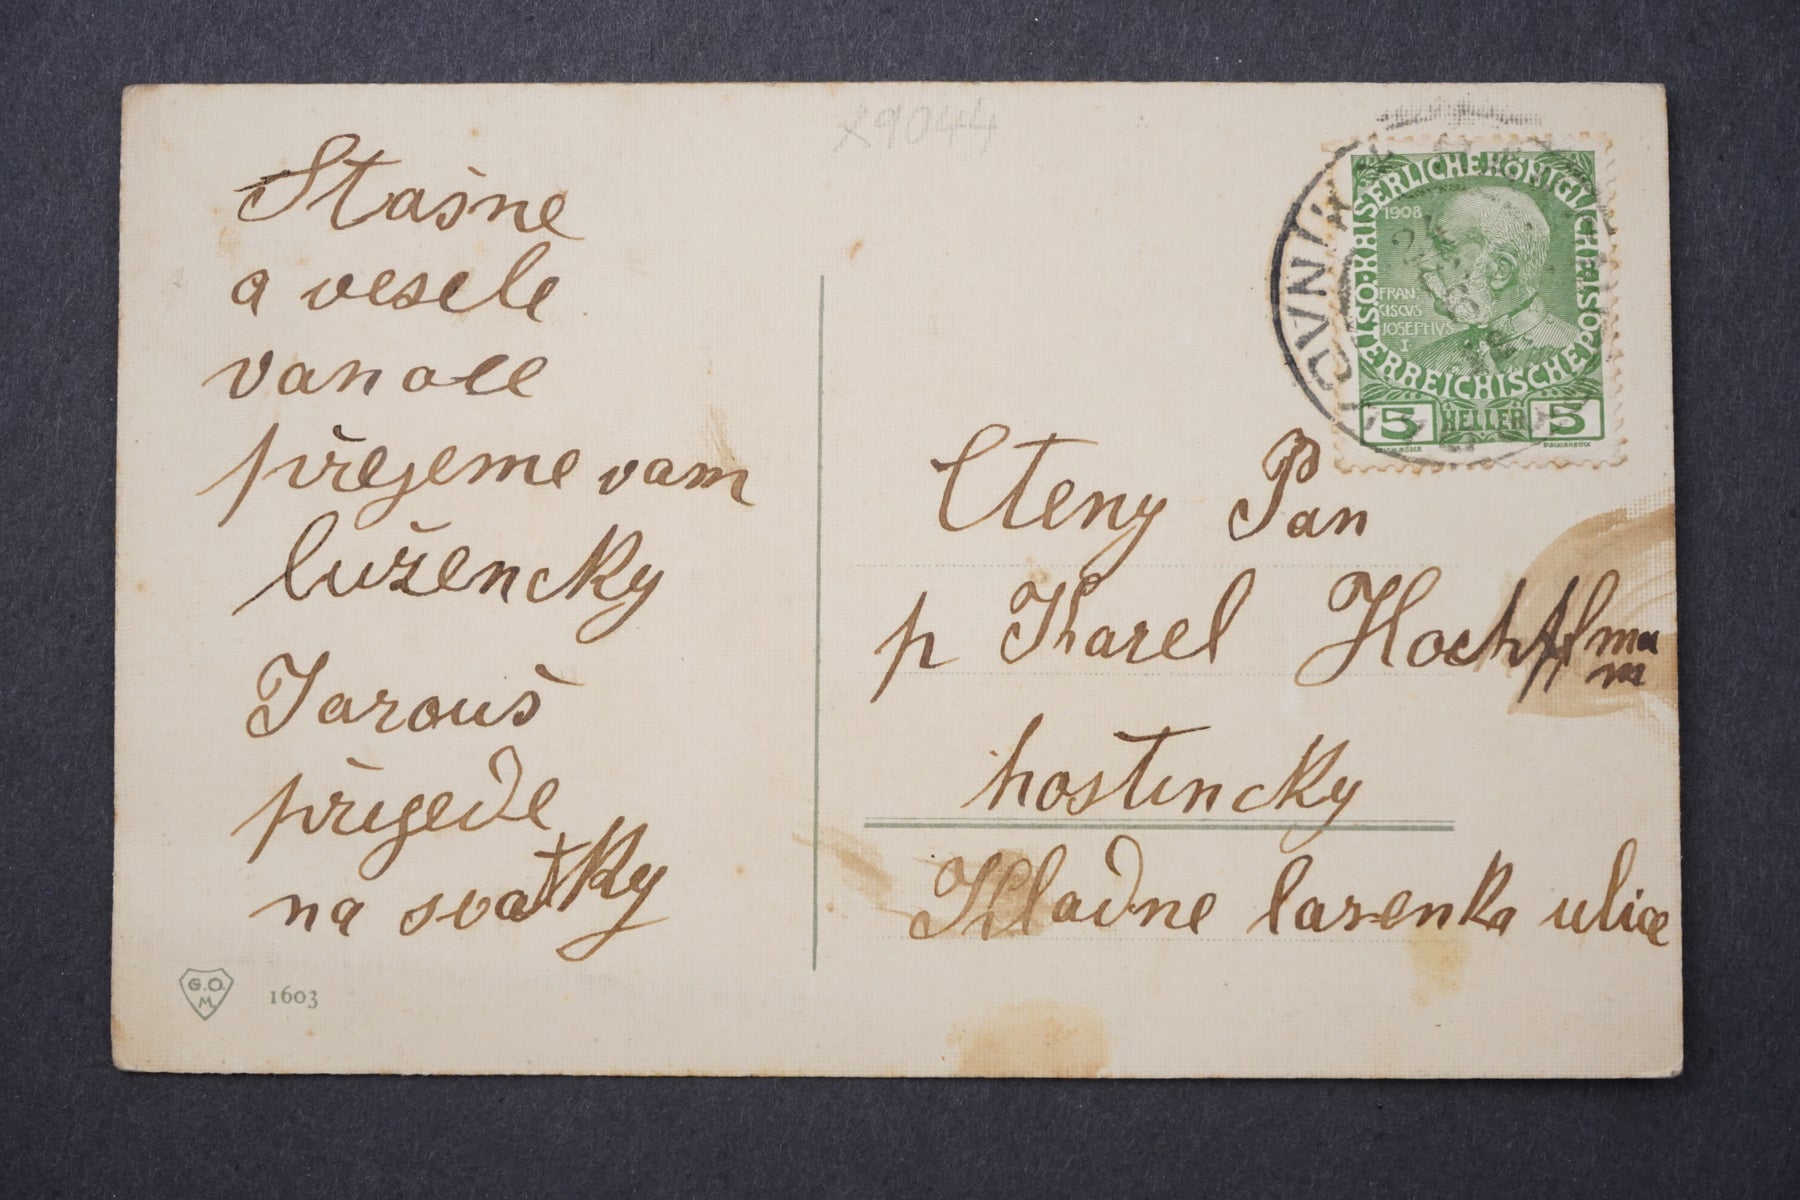 29044
Stasne
a vesele
vanoce
přejeme vam
lužencky
Jarouš
přigede
na svatky
G.O.
M.
1603
KAISERLICHE KÖNIGLICHE ÖSTERREICHISCHE POST
1908
FRAN
CISCVS
JOSEPHVS
I
5 HELLER 5
Cteny Pan
p Karel Hochffl man
n
hostincky
Kladne lazenka ulice